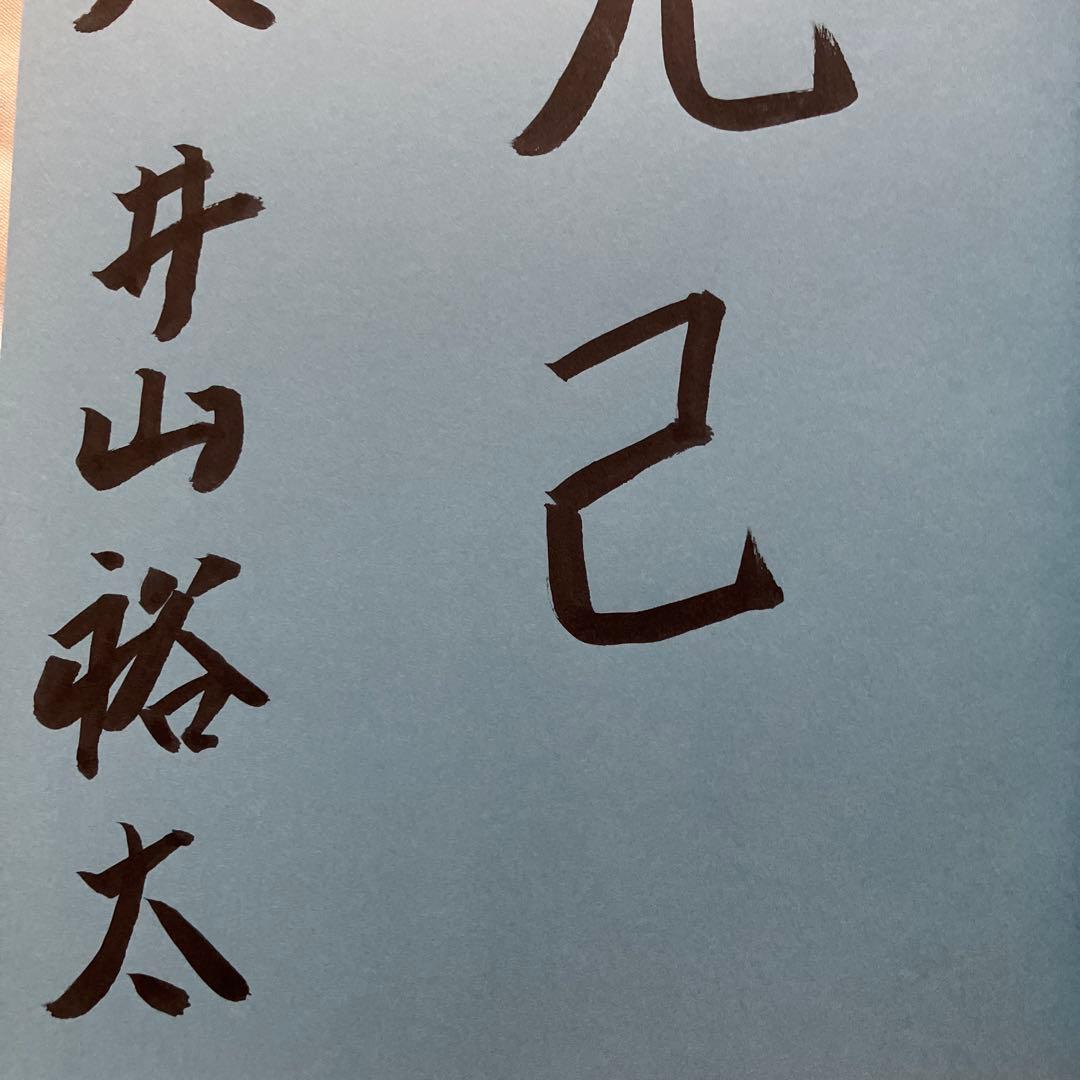 己
井山裕太